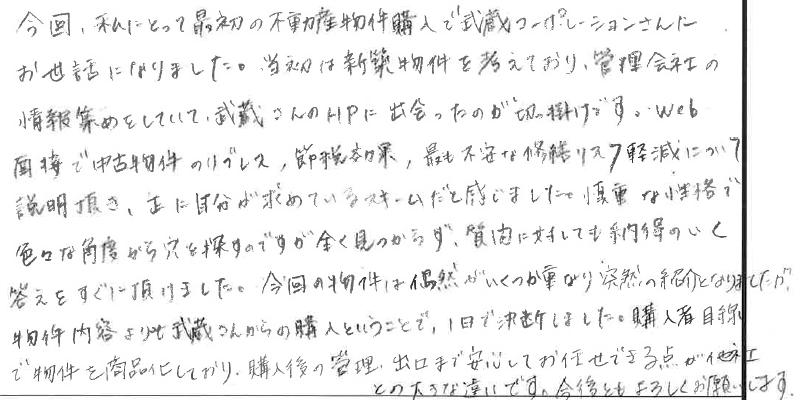 今回、私にとって最初の不動産物件購入で武蔵コーポレーションさんに
お世話になりました。当初は新築物件を考えており、管理会社の
情報集めをしていて、武蔵さんのHPに出会ったのが切っ掛けです。Web
面接で中古物件のリブレス、節税効果、最も不安な修繕リスク軽減について
説明頂き、正に自分が求めているスキームだと感じました。慎重な性格で
色々な角度から穴を探すのですが全く見つからず、質問に対しても納得のいく
答えをすぐに頂けました。今回の物件は偶然がいくつか重なり突然の紹介となりましたが、
物件内容よりも武蔵さんからの購入ということで、1日で決断しました。購入者目線
で物件を商品化しており、購入後の管理、出口まで安心してお任せできる点が他社
との大きな違いです。今後ともよろしくお願いします。